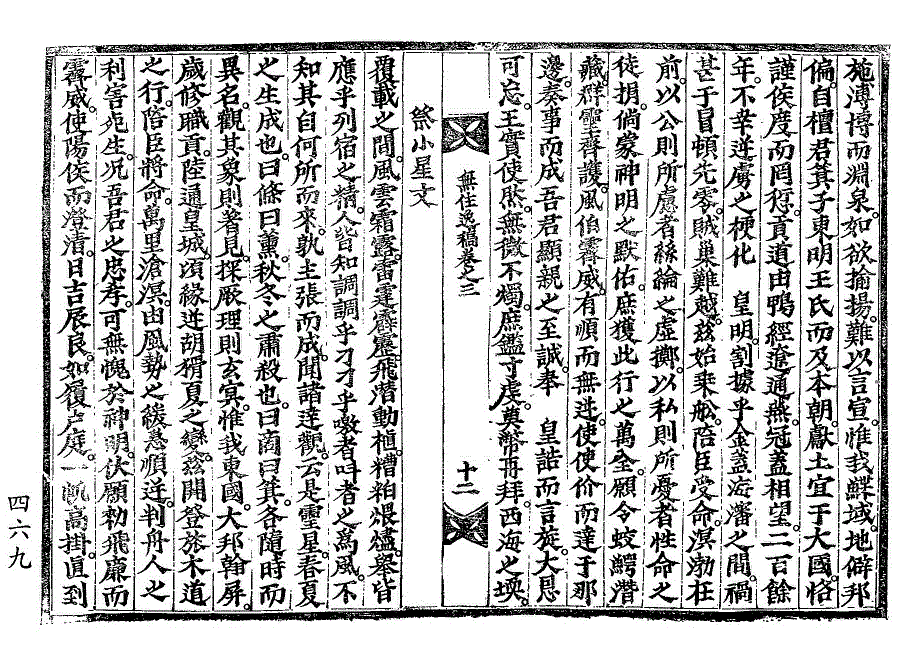 施溥博而淵泉。如欲揄揚。難以言宣。惟我鰈域。地僻邦
偏。自檀君箕子東明王氏而及本朝。獻土宜于大國。恪
謹侯度而罔愆。貢道由鴨經遼通燕。冠蓋相望。二百餘
年。不幸逆虜之梗化 皇明。割據乎金盖海瀋之間。禍
甚于冒頓先零。賊巢難越。玆始乘船。陪臣受命。溟渤在
前。以公則所慮者絲綸之虛擲。以私則所憂者性命之
徒捐。倘蒙神明之默佑。庶獲此行之萬全。願令蛟鰐潛
藏。群靈斉護。風伯霽威。有順而無逆。使使价而達于那
邊。奏事而成吾君顯親之至誠。奉 皇誥而言旋。大恩
可忘。王實使然。無微不燭。庶鑑寸虔。奠幣再拜。西海之堧。
無住逸稿卷之三
十二
祭小星文
覆載之間。風雲霜露。雷霆霹靂。飛潛動植。糟粕煨燼。擧皆
應乎列宿之精。人皆知調調乎刁刁乎。噭者叫者之爲風。不
知其自何所而來。孰主張而成。聞諸達觀。云是靈星。春夏
之生成也。曰條曰薰。秋冬之肅殺也。曰商曰箕。各隨時而
異名。觀其象則著見。探厥理則玄冥。惟我東國。大邦翰屏。
歲修職貢。陸通皇城。頃緣逆胡猾夏之變。玆開登旅木道
之行。陪臣將命。萬里滄溟。由風勢之緩急順逆。判舟人之
利害死生。况吾君之忠孝。可無愧於神明。伏願勑飛廉而
霽威。使陽侯而澄淸。日吉辰良。如履戶庭。一颿高掛。直到
四六九